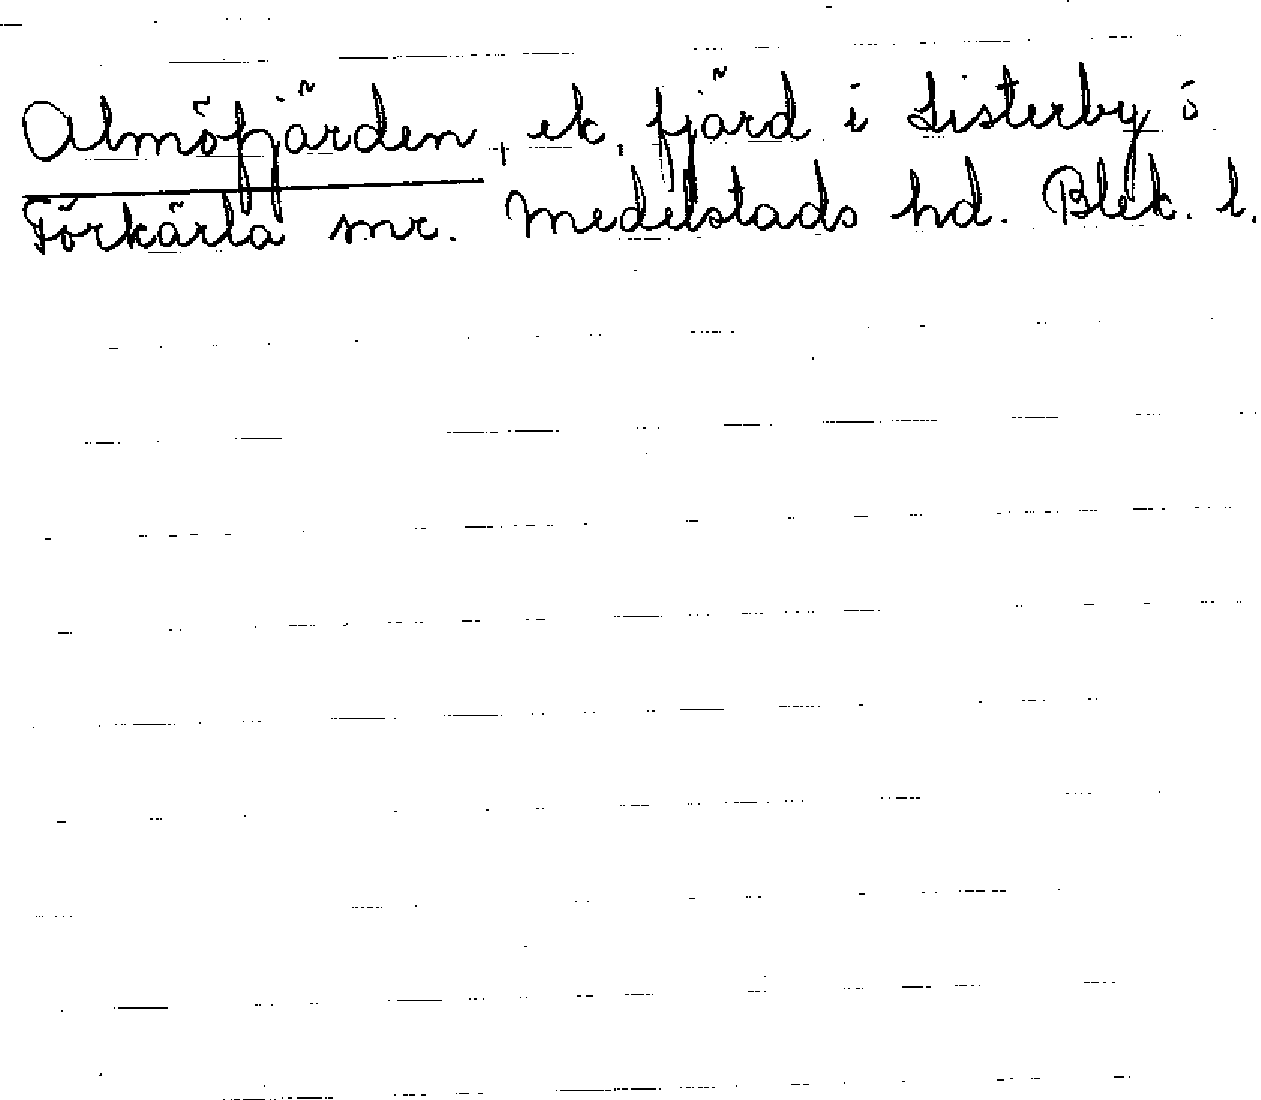 Almöfjärden, ek, fjärd i Listerby o
Förkärla snr. Medelstads hd. Blek. l.